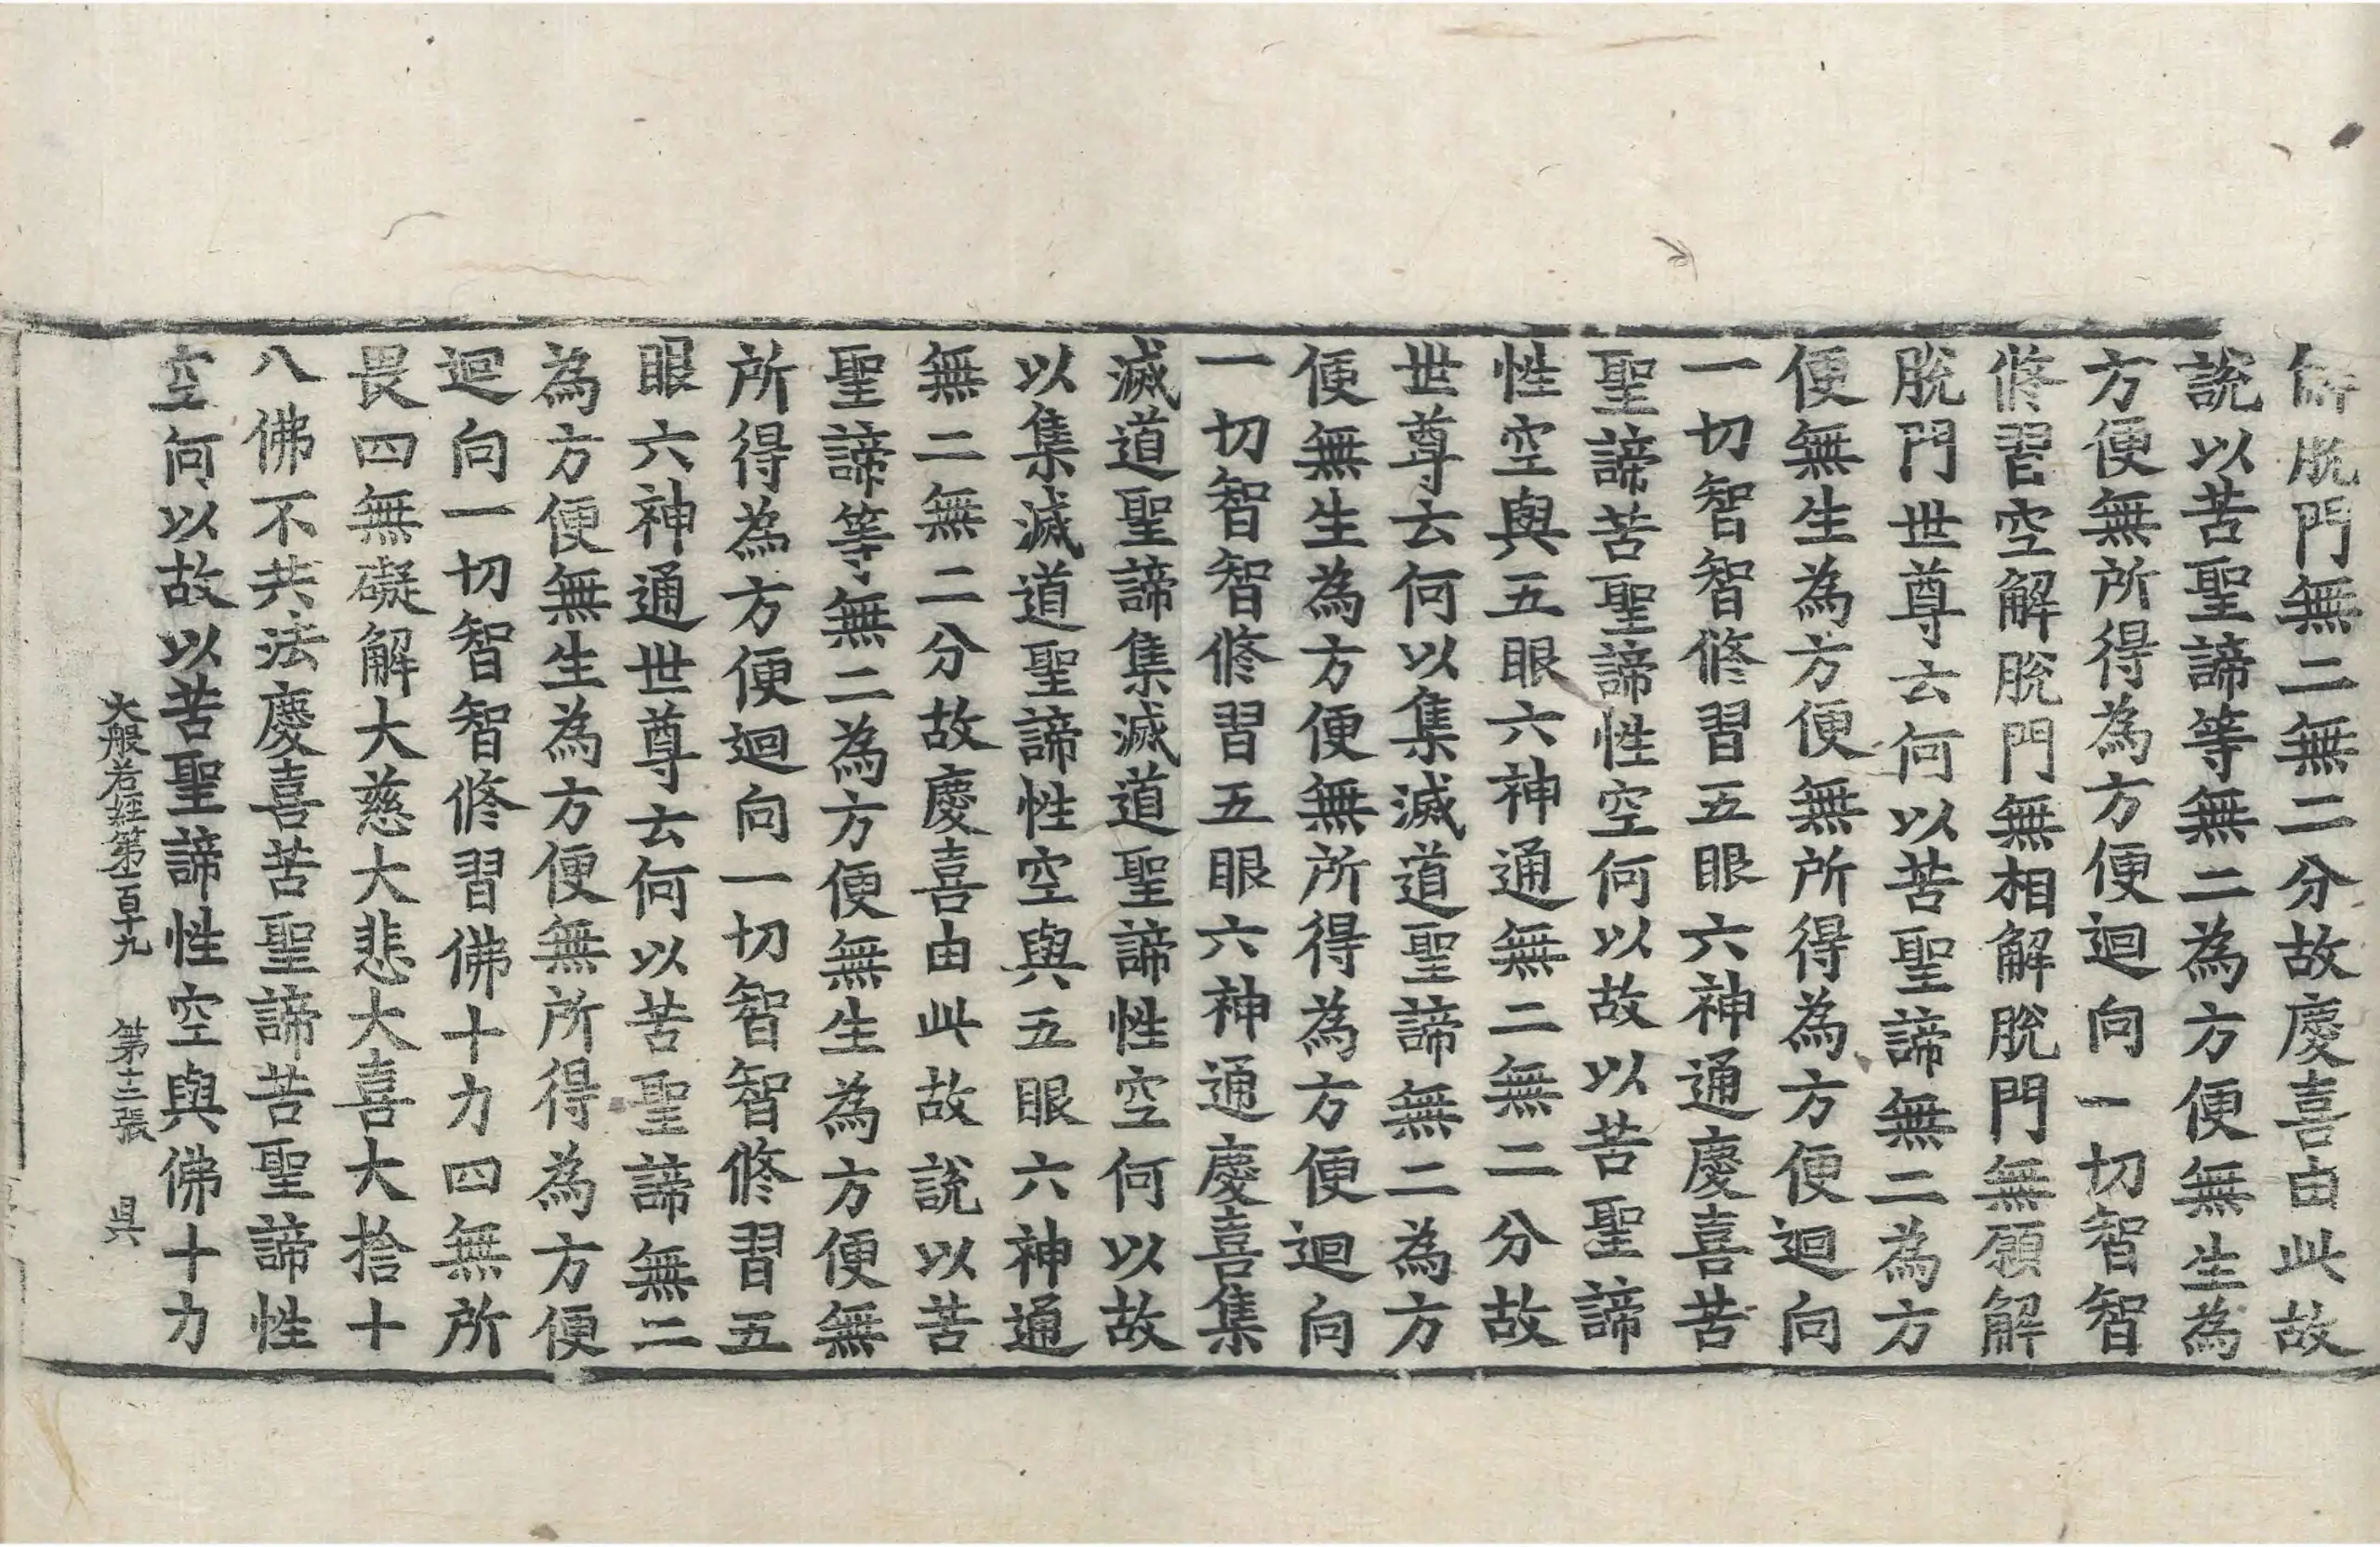 解脫門無二無二分故慶喜由此故
說以苦聖諦等無二為方便無生為
方便無所得為方便迴向一切智智
修習空解脫門無相解脫門無願解
脫門世尊云何以苦聖諦無二為方
便無生為方便無所得為方便迴向
一切智智修習五眼六神通慶喜苦
聖諦苦聖諦性空何以故以苦聖諦
性空與五眼六神通無二無二分故
世尊云何以集滅道聖諦無二為方
便無生為方便無所得為方便迴向
一切智智修習五眼六神通慶喜集
滅道聖諦集滅道聖諦性空何以故
以集滅道聖諦性空與五眼六神通
無二無二分故慶喜由此故說以苦
聖諦等無二為方便無生為方便無
所得為方便迴向一切智智修習五
眼六神通世尊云何以苦聖諦無二
為方便無生為方便無所得為方便
迴向一切智智修習佛十力四無所
畏四無礙解大慈大悲大喜大捨十
八佛不共法慶喜苦聖諦苦聖諦性
空何以故以苦聖諦性空與佛十力
大般若經第一百十九 第十三張 昃